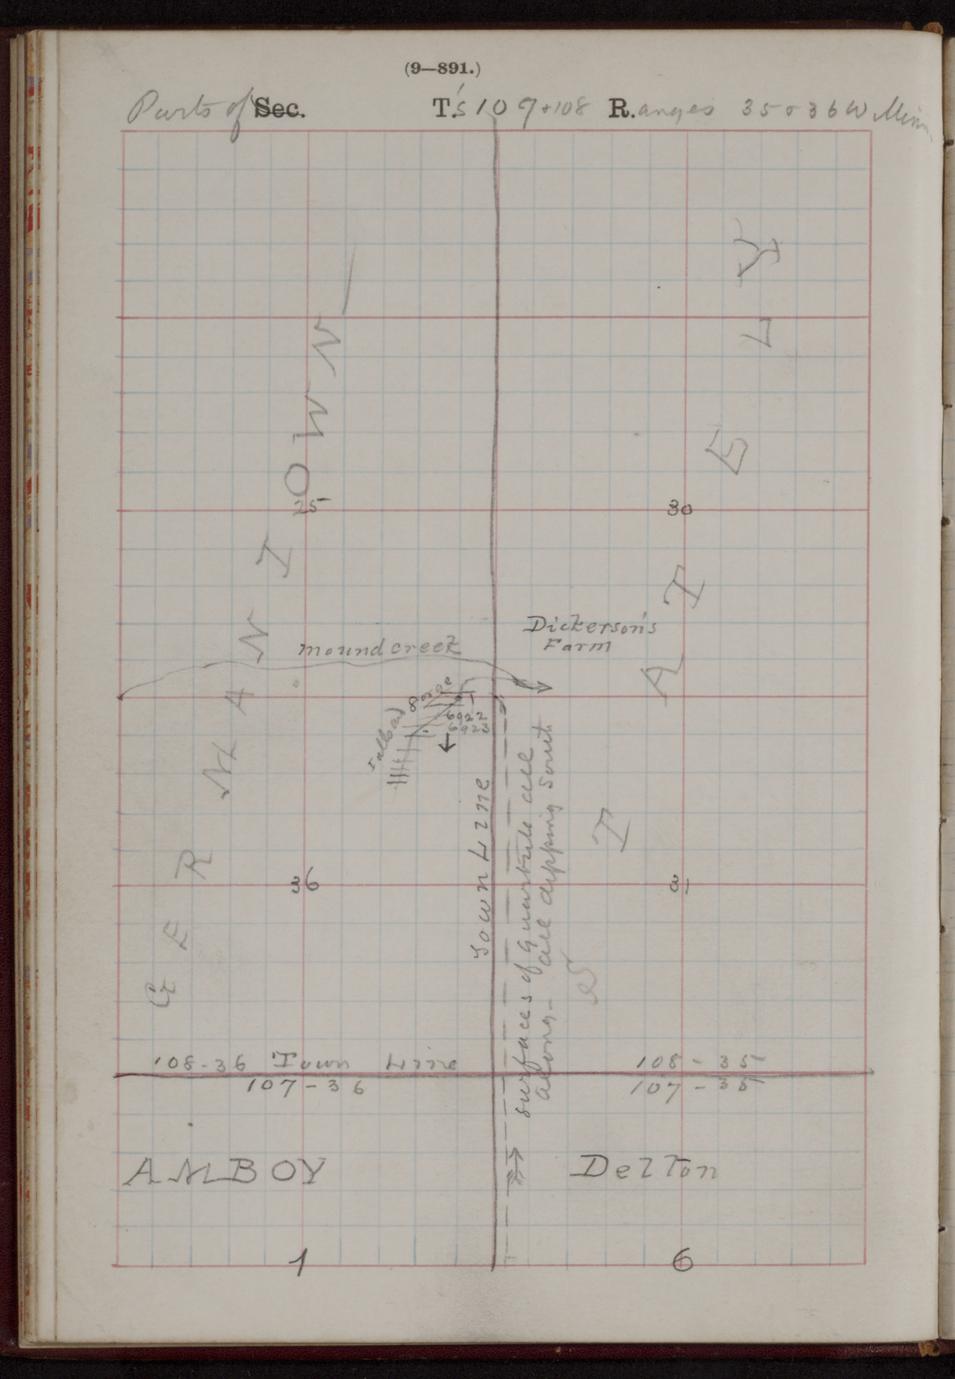 (9—891.)
Parts of Sec. T.'s 107+108 R.anges 35 & 36 W Minn.
GERMANTOWN
STATELY
25
30
moundcreek
Dickerson's
Farm
gorge
6922
6923
Town Line
surfaces of quartzite all
along - all dipping South
36
31
108-36 Town Line
107-36
108-35
107-35
AMBOY
Delton
1
6